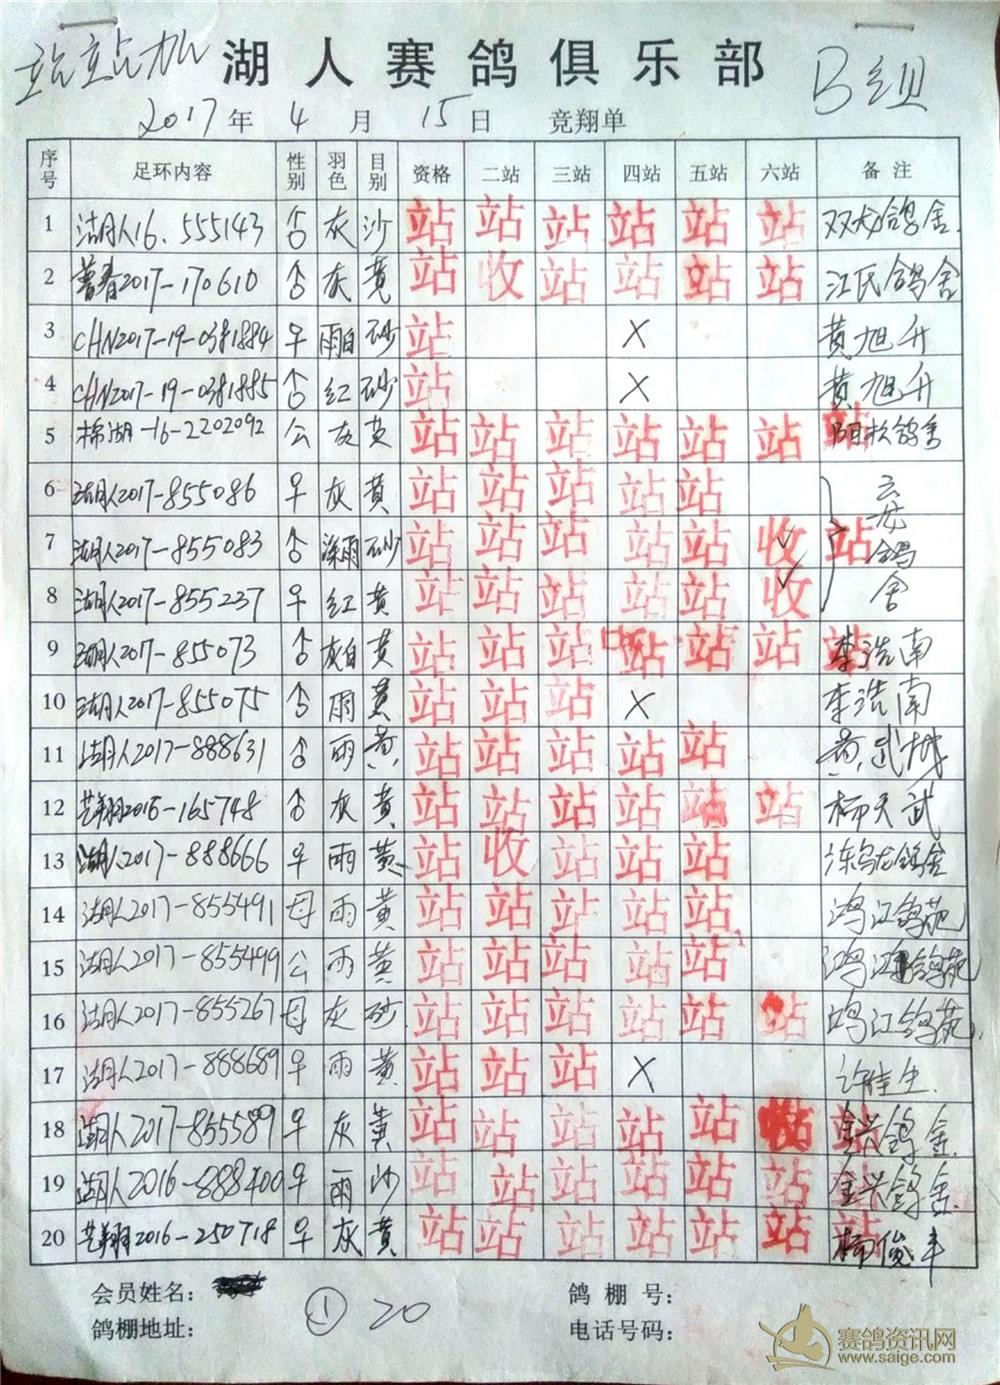 站站加 湖人赛鸽俱乐部 B组
2017年 4月 15日 竞翔单
序号 足环内容 性别 羽色 目别 资格 二站 三站 四站 五站 六站 备注
1 湖人16.555143 灰 沙 站 站 站 站 站 站 双龙鸽舍.
2 普春2017-170610 灰 黄 站 收 站 站 站 站 江氏鸽舍
3 CHN2017-19-0381884 雨白 砂 站 X 黄旭升
4 CHN2017-19-0381885 红 砂 站 X 黄旭升
5 棉湖-16-2202092 公 灰 黄 站 站 站 站 站 站 站 鸽舍
6 湖人2017-855086 灰 黄 站 站 站 站 站
7 湖人2017-855083 深雨 砂 站 站 站 站 站 收 站 鸽
8 湖人2017-855237 红 黄 站 站 站 站 站 收 舍
9 湖人2017-855073 灰白 黄 站 站 站 站 站 站 站 李浩南
10 湖人2017-855075 雨 黄 站 站 站 X 李浩南
11 湖人2017-888631 雨 黄 站 站 站 站 站 黄武城
12 艺翔2016-165748 灰 黄 站 站 站 站 站 站 杨天武
13 湖人2017-888666 雨 黄 站 收 站 站 站 乌龙鸽舍
14 湖人2017-855491 母 雨 黄 站 站 站 站 站 鸿江鸽苑
15 湖人2017-855499 公 雨 黄 站 站 站 站 站 鸿江鸽苑
16 湖人2017-855267 母 灰 砂 站 站 站 站 站 站 鸿江鸽苑
17 湖人2017-888689 雨 黄 站 站 站 X 许佳生.
18 湖人2017-855589 灰 黄 站 站 站 站 站 收 站 金兴鸽舍.
19 湖人2016-888400 雨 沙 站 站 站 站 站 站 站 金兴鸽舍.
20 艺翔2016-250718 灰 黄 站 站 站 站 站 站 站 杨俊丰
会员姓名： 鸽棚号：
鸽棚地址： ① 20 电话号码：
赛鸽资讯网
www.saige.com